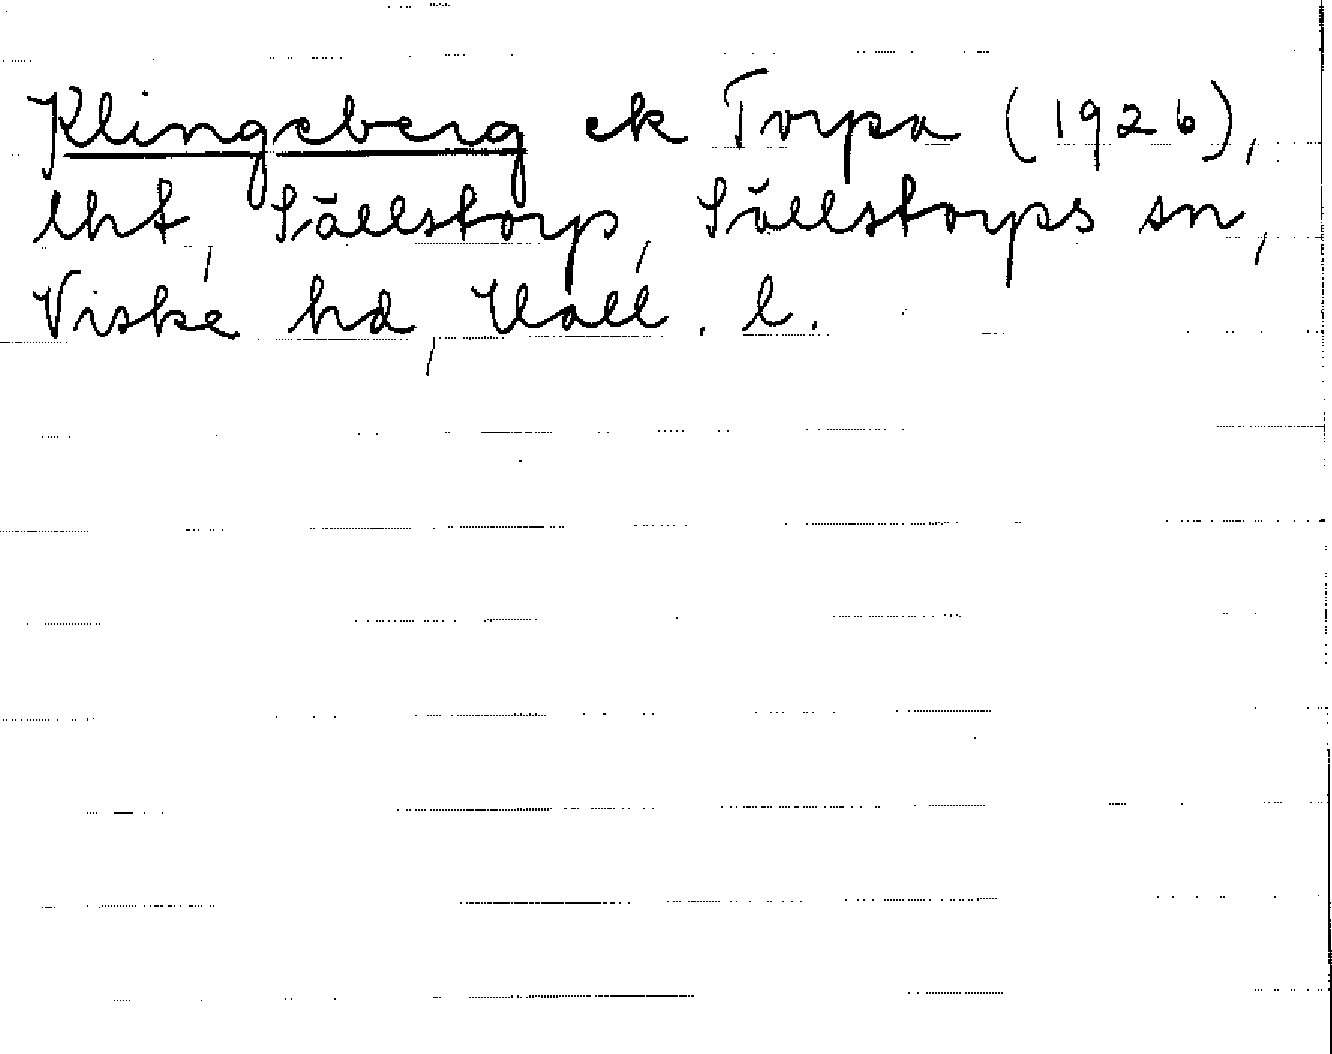 Klingeberg ek Torpa (1926),
lht, Sällstorp, Sällstorps sn,
Viske hd, Hall. l.